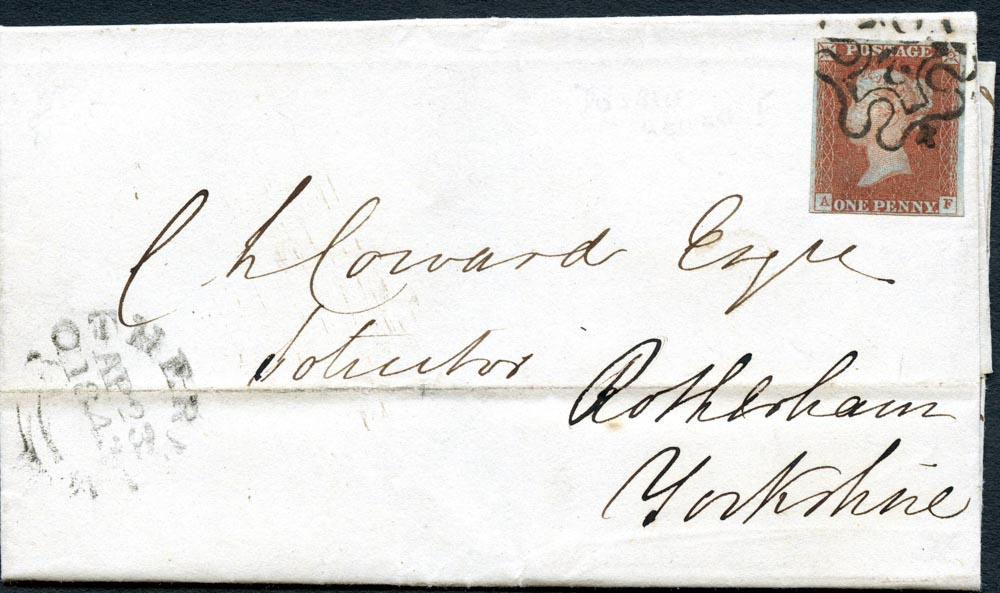 POSTAGE
A ONE PENNY. F
C h Coward Esqre
Solicitor
Rotherham
Yorkshire
ROTHER
AP